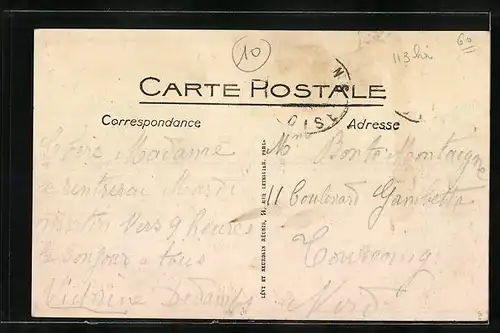 10
113 hi
60
CARTE POSTALE
Correspondance
Adresse
Chère Madame
Je rentrerai Mardi
matin vers 9 heures
le bonjour a tous
Victorine
Mme Bonte Montaigne
11 Boulevard Gambetta
Tourcoing
Nord
LÉVY ET NEURDEIN RÉUNIS, 44, RUE LETELLIER, PARIS